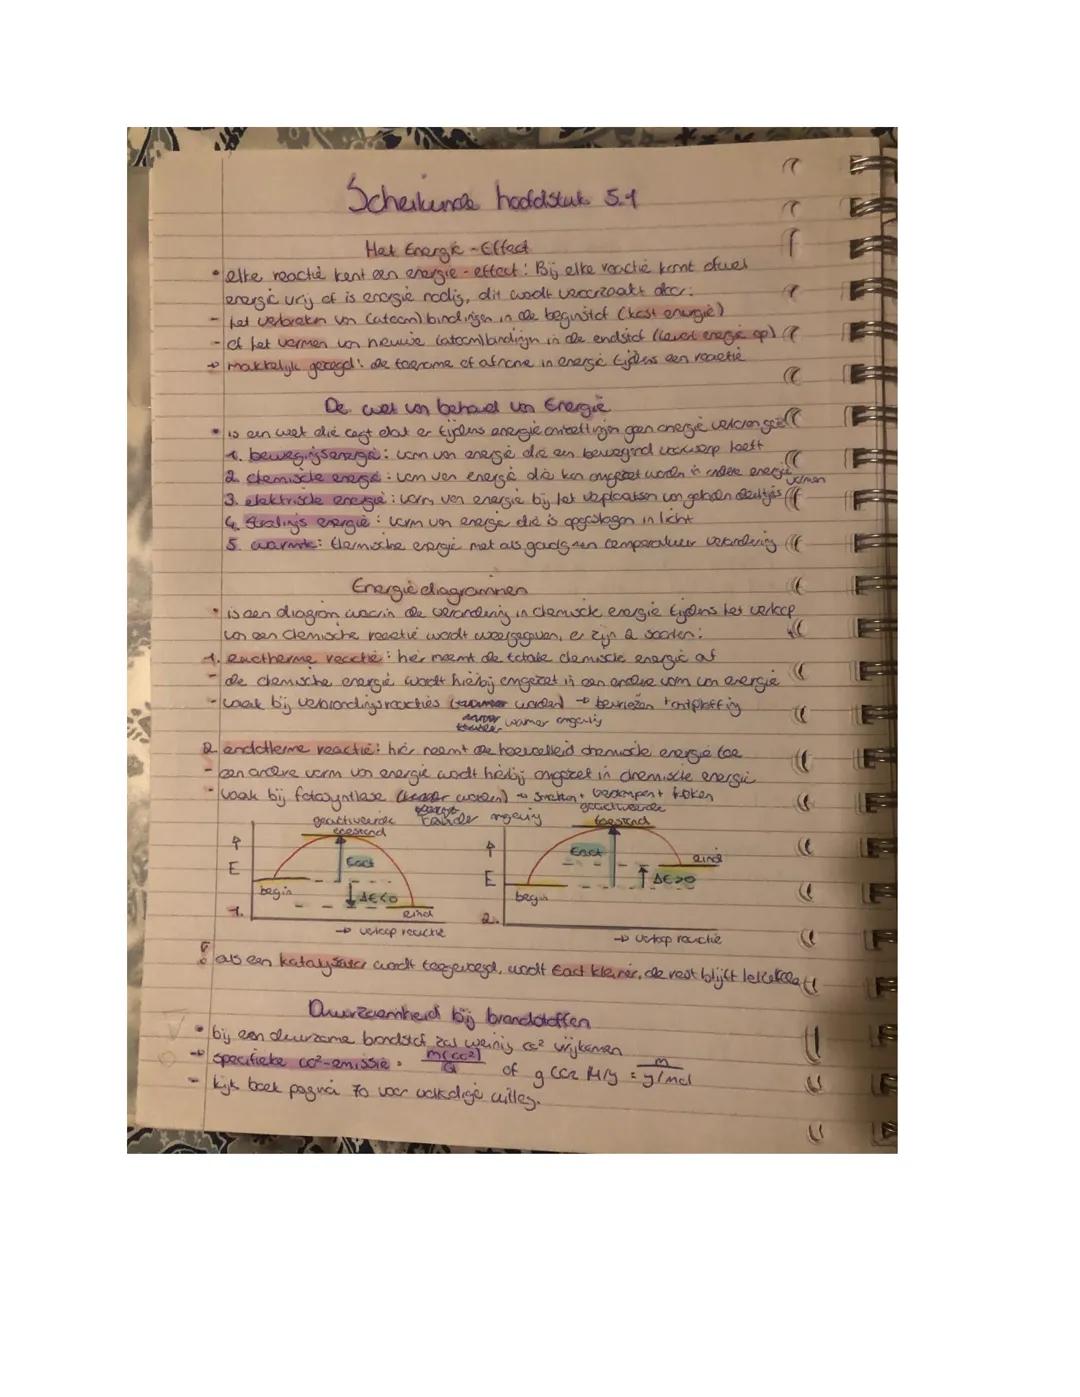 Scheikunde hoofdstuk 5.1
Het Energie-Effect
• elke reactie kent een energie-effect: Bij elke reactie komt ofwel
energie vrij of is energie nodig, dit wordt veroorzaakt door:
- het verbreken van (atoom)bindingen in de beginstof (kost energie)
- of het vormen van nieuwe (atoom)bindingen in de endstof (levert energie op)
→ makkelijk gezegd: de toename of afname in energie tijdens een reactie
De wet van behoud van Energie
• is een wet die zegt dat er tijdens energieomzettingen geen energie verloren gaat
1. bewegingsenergie: vorm van energie die een bewegend voorwerp heeft
2. chemische energie: vorm van energie die kan omgezet worden in andere energie vormen
3. elektrische energie: vorm van energie bij het verplaatsen van geladen deeltjes
4. Stralings energie: vorm van energie die is opgeslagen in licht
5. warmte: thermische energie met als gevolg een temperatuur verandering
Energiediagrammen
• is een diagram waarin de verandering in chemische energie tijdens het verloop
van een chemische reactie wordt weergegeven, er zijn 2 soorten:
1. exotherme reactie: hier neemt de totale chemische energie af
- de chemische energie wordt hierbij omgezet in een andere vorm van energie
- vaak bij verbrandingsreacties (warmer worden) → bevriezen + ontploffing
warmer omgeving
2. endotherme reactie: hier neemt de hoeveelheid chemische energie toe
- een andere vorm van energie wordt hierbij omgezet in chemische energie
- vaak bij fotosynthese (kouder worden) → smelten + verdampen + koken
kouder omgeving
geactiveerde toestand
E
Eact
begin
ΔE<0
eind
1.
→ verloop reactie
geactiveerde toestand
E
Eact
eind
ΔE>0
begin
2.
→ verloop reactie
! als een katalysator wordt toegevoegd, wordt Eact kleiner, de rest blijft hetzelfde
Duurzaamheid bij brandstoffen
• bij een duurzame brandstof zal weinig co² vrijkomen
→ specifieke co²-emissie = m(co2) of g CO2 M/g = m g/mol
- kijk boek pagina 70 voor volledige uitleg.